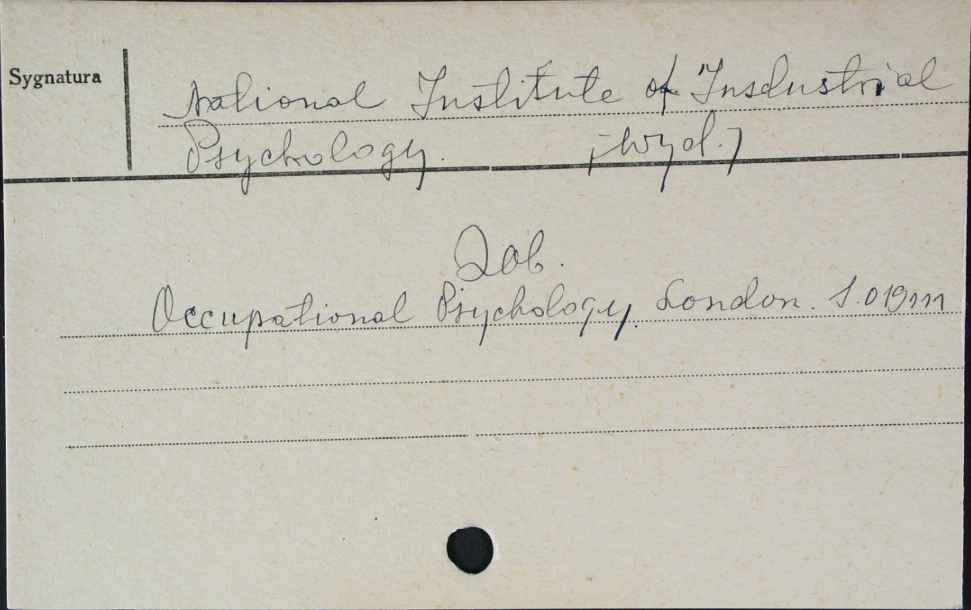 Sygnatura
National Institute of Insdustrial
Psychology. [wyd.]
Zob.
Occupational Psychology. London.